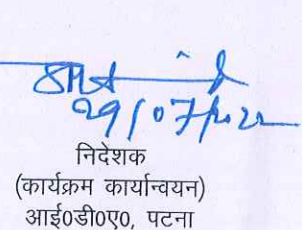 29/07/2022
निदेशक
(कार्यक्रम कार्यान्वयन)
आई0डी0ए0, पटना